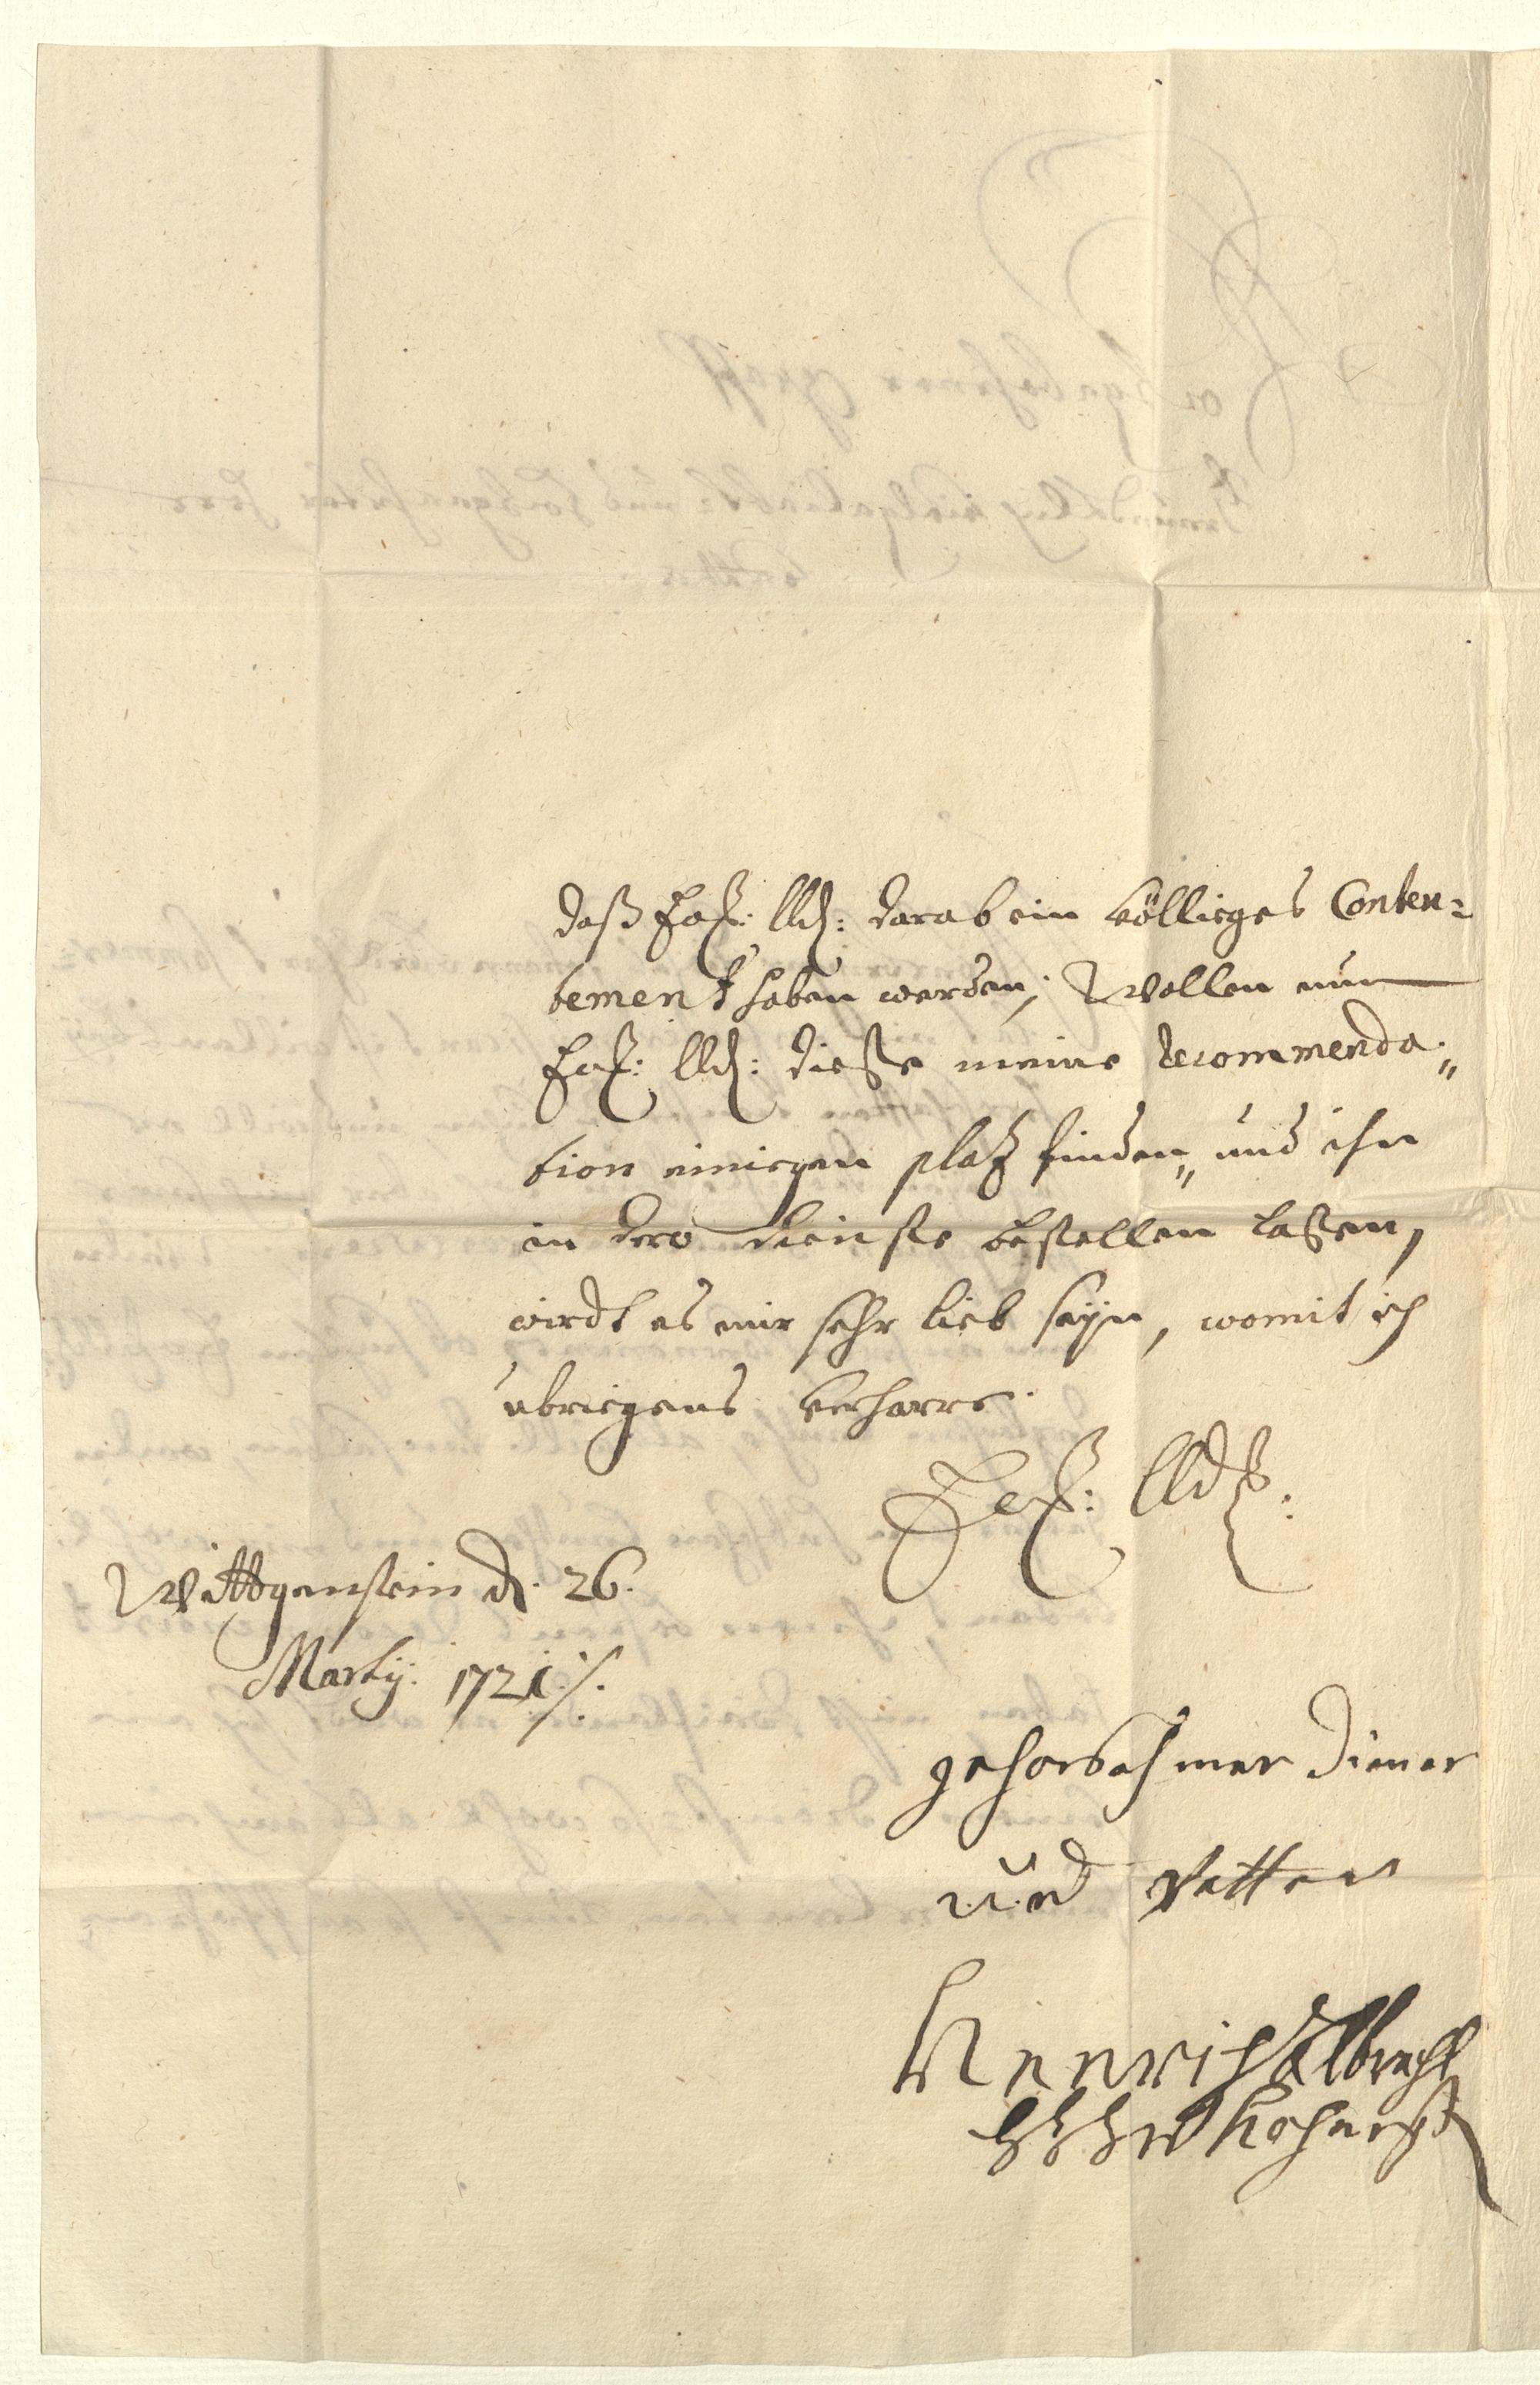 daß Ew: lld: darab ein völliges Conten=
tement haben werden; Wollen nun
Ew: lld: dieße meine Recommenda„
tion einigen platz finden„ und ihn
in dero dienste bestellen laßen,
wirdt es mir sehr lieb seyn, womit ich
übriegens verharre.
Ew: lld:
Wittgenstein d. 26.
Martij. 1721 ·/.
gehorsahmer diener
und Vetter
Henrich Albrecht